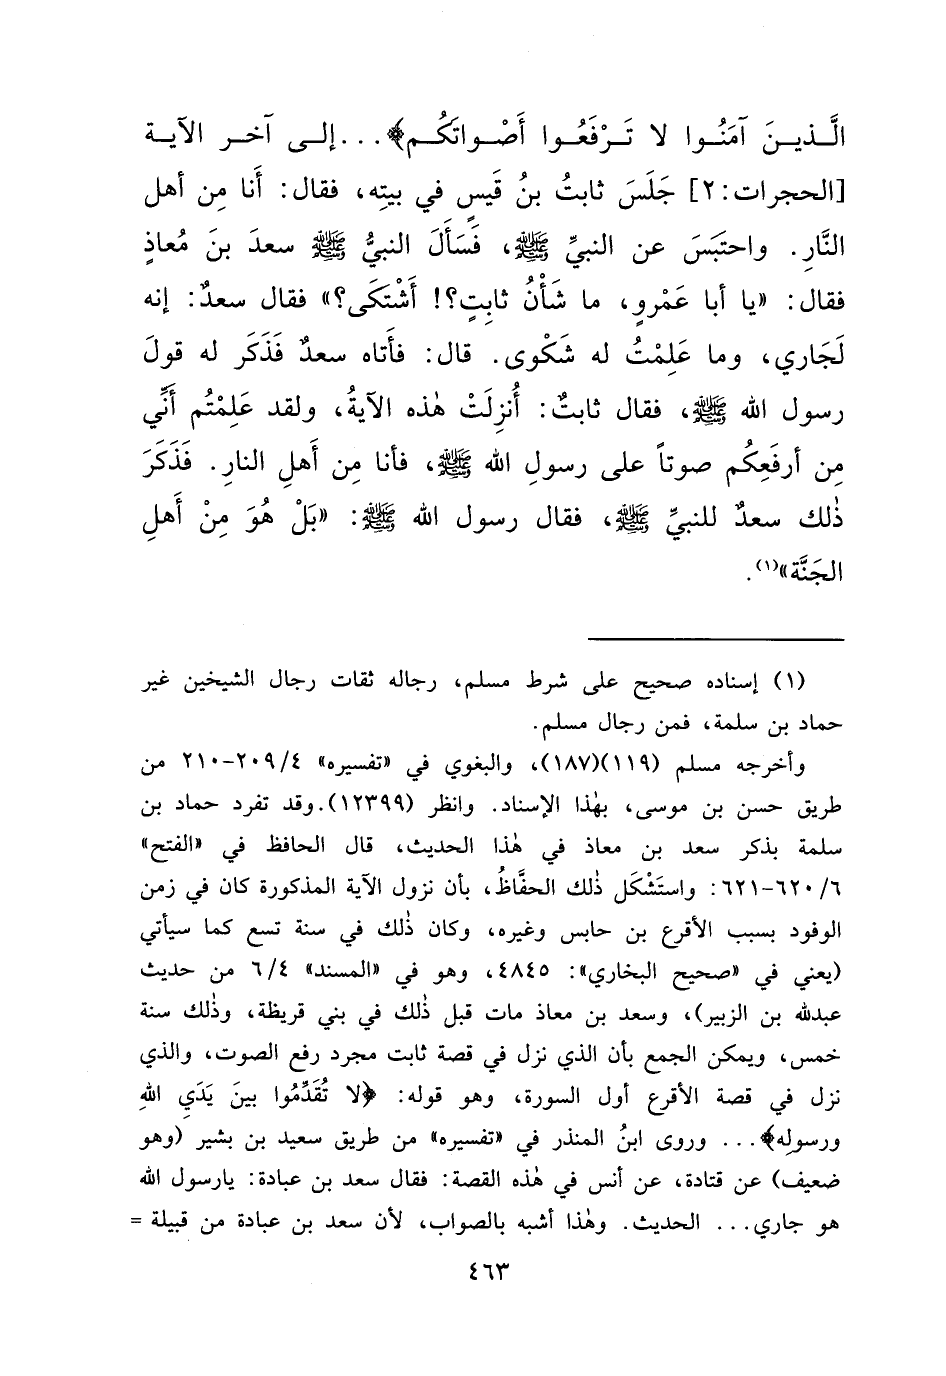 الَّـذيـنَ آمَنُـوا لا تَـرْفَعُـوا أَصْـواتَكُـم﴾...إلـى آخـر الآيـة
[الحجرات:٢] جَلَسَ ثابتُ بنُ قَيسٍ في بيتِه، فقال: أَنا مِن أهل
النَّارِ. واحتَبَسَ عن النبيِّ ﷺ، فَسَأَلَ النبيُّ ﷺ سعدَ بنَ مُعاذٍ
فقال: «يا أبا عَمْرٍو، ما شَأْنُ ثابِتٍ؟! أَشْتَكَى؟» فقال سعدٌ: إنه
لَجَاري، وما عَلِمْتُ له شَكْوى. قال: فأَتاه سعدٌ فَذَكَر له قولَ
رسول الله ﷺ، فقال ثابتٌ: أُنزِلَتْ هٰذه الآيةُ، ولقد عَلِمْتُم أَنِّي
مِن أرفَعِكُم صوتاً على رسولِ الله ﷺ، فأنا مِن أَهلِ النارِ. فَذَكَرَ
ذٰلك سعدٌ للنبيِّ ﷺ، فقال رسول الله ﷺ: «بَلْ هُوَ مِنْ أَهلِ
الجَنَّة»(١).
(١) إسناده صحيح على شرط مسلم، رجاله ثقات رجال الشيخين غير
حماد بن سلمة، فمن رجال مسلم.
وأخرجه مسلم (١١٩)(١٨٧)، والبغوي في «تفسيره» ٢٠٩/٤-٢١٠ من
طريق حسن بن موسى، بهٰذا الإسناد. وانظر (١٢٣٩٩).وقد تفرد حماد بن
سلمة بذكر سعد بن معاذ في هٰذا الحديث، قال الحافظ في «الفتح»
٦٢٠/٦-٦٢١: واستَشْكَل ذٰلك الحفَّاظُ، بأن نزول الآية المذكورة كان في زمن
الوفود بسبب الأقرع بن حابس وغيره، وكان ذٰلك في سنة تسع كما سيأتي
(يعني في «صحيح البخاري»: ٤٨٤٥، وهو في «المسند» ٦/٤ من حديث
عبدلله بن الزبير)، وسعد بن معاذ مات قبل ذٰلك في بني قريظة، وذٰلك سنة
خمس، ويمكن الجمع بأن الذي نزل في قصة ثابت مجرد رفع الصوت، والذي
نزل في قصة الأقرع أول السورة، وهو قوله: ﴿لا تُقَدِّمُوا بينَ يَدَيِ اللهِ
ورسولِه﴾... وروى ابنُ المنذر في «تفسيره» من طريق سعيد بن بشير (وهو
ضعيف) عن قتادة، عن أنس في هٰذه القصة: فقال سعد بن عبادة: يارسول الله
هو جاري... الحديث. وهٰذا أشبه بالصواب، لأن سعد بن عبادة من قبيلة =
٤٦٣